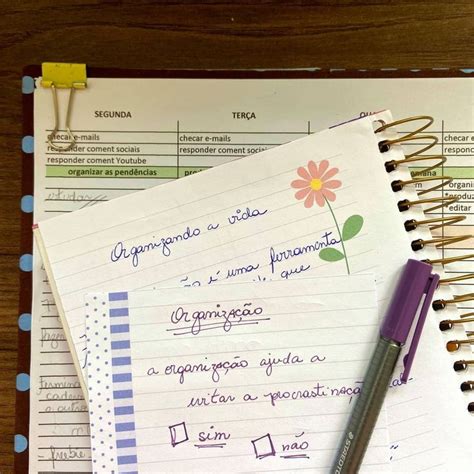 SEGUNDA TERÇA QU
checar e-mails checar e-mails
responder coment sociais responder coment sociais
responder coment Youtube
organizar as pendências
*produz
editar
estudar
Organizando a vida
ão é uma ferramenta
de que
Organização
a organização ajuda a
evitar a procrastinação
sim não
STAEDTLER